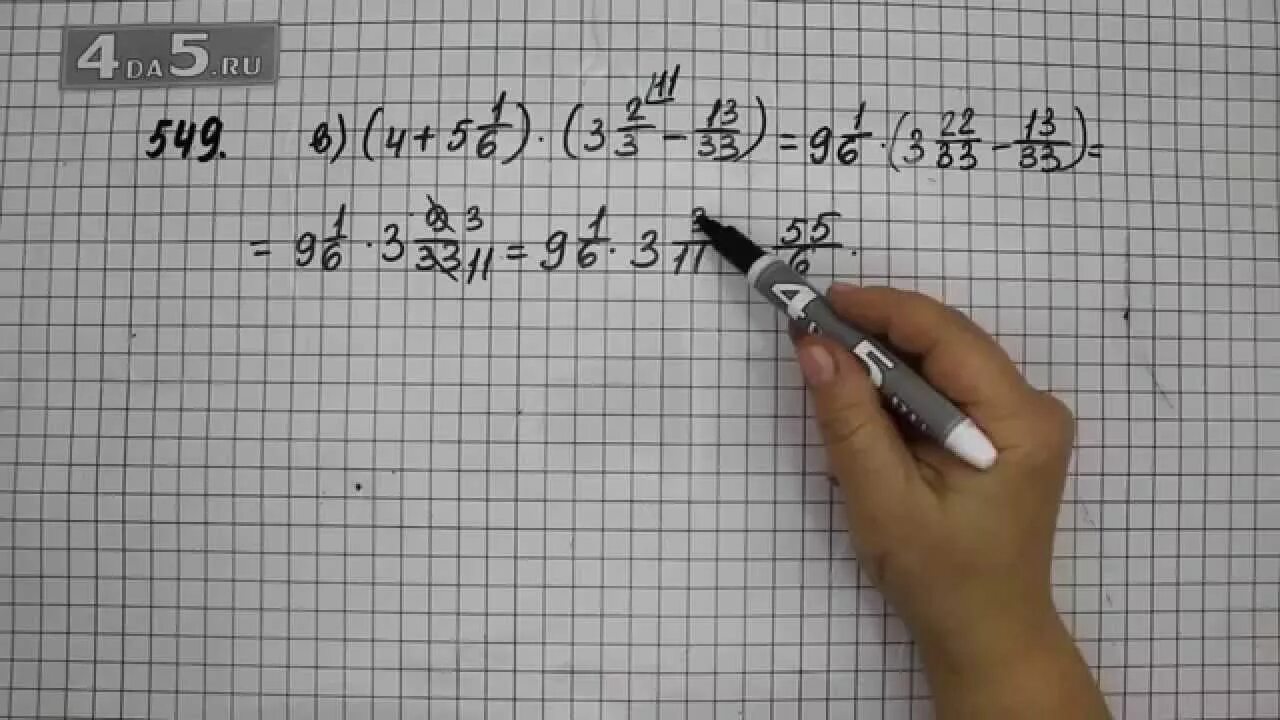 4DA5.RU
549. в) (4 + 5 1/6) · (3 2/3 \11 − 13/33) = 9 1/6 · (3 22/33 − 13/33) =
= 9 1/6 · 3 9/33 3/11 = 9 1/6 · 3 3/11 55/6 ·
4 5